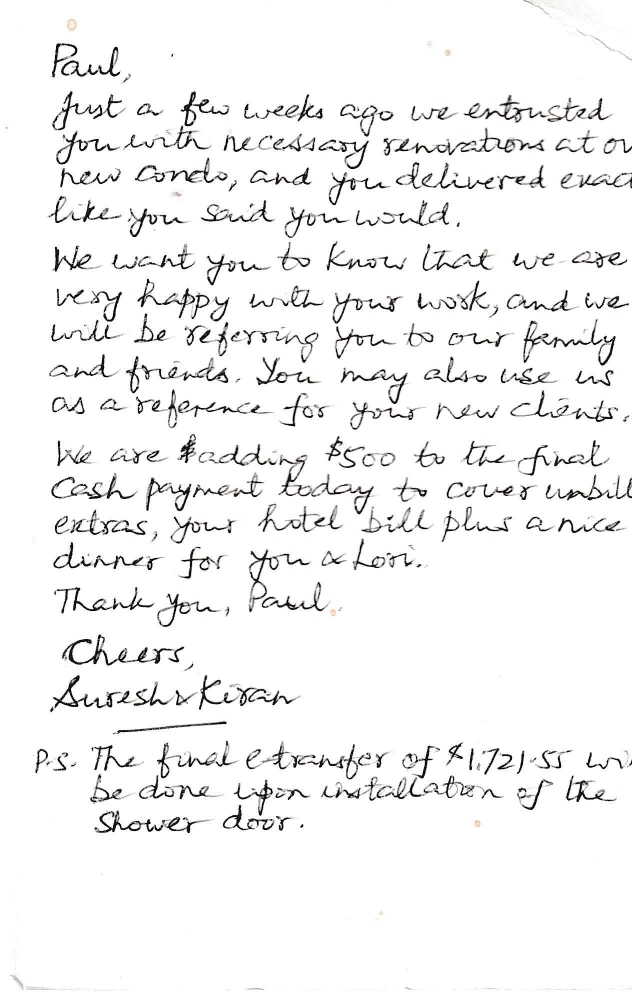 Paul,
Just a few weeks ago we entrusted
you with necessary renovations at ou
new condo, and you delivered exact
like you said you would.
We want you to know that we are
very happy with your work, and we
will be referring you to our family
and friends. You may also use us
as a reference for your new clients.
We are adding $500 to the final
cash payment today to cover unbill
extras, your hotel bill plus a nice
dinner for you & Lori.
Thank you, Paul.
Cheers,
Suresh & Kiran
P.S. The final e-transfer of $1,721.55 wi
be done upon installation of the
shower door.